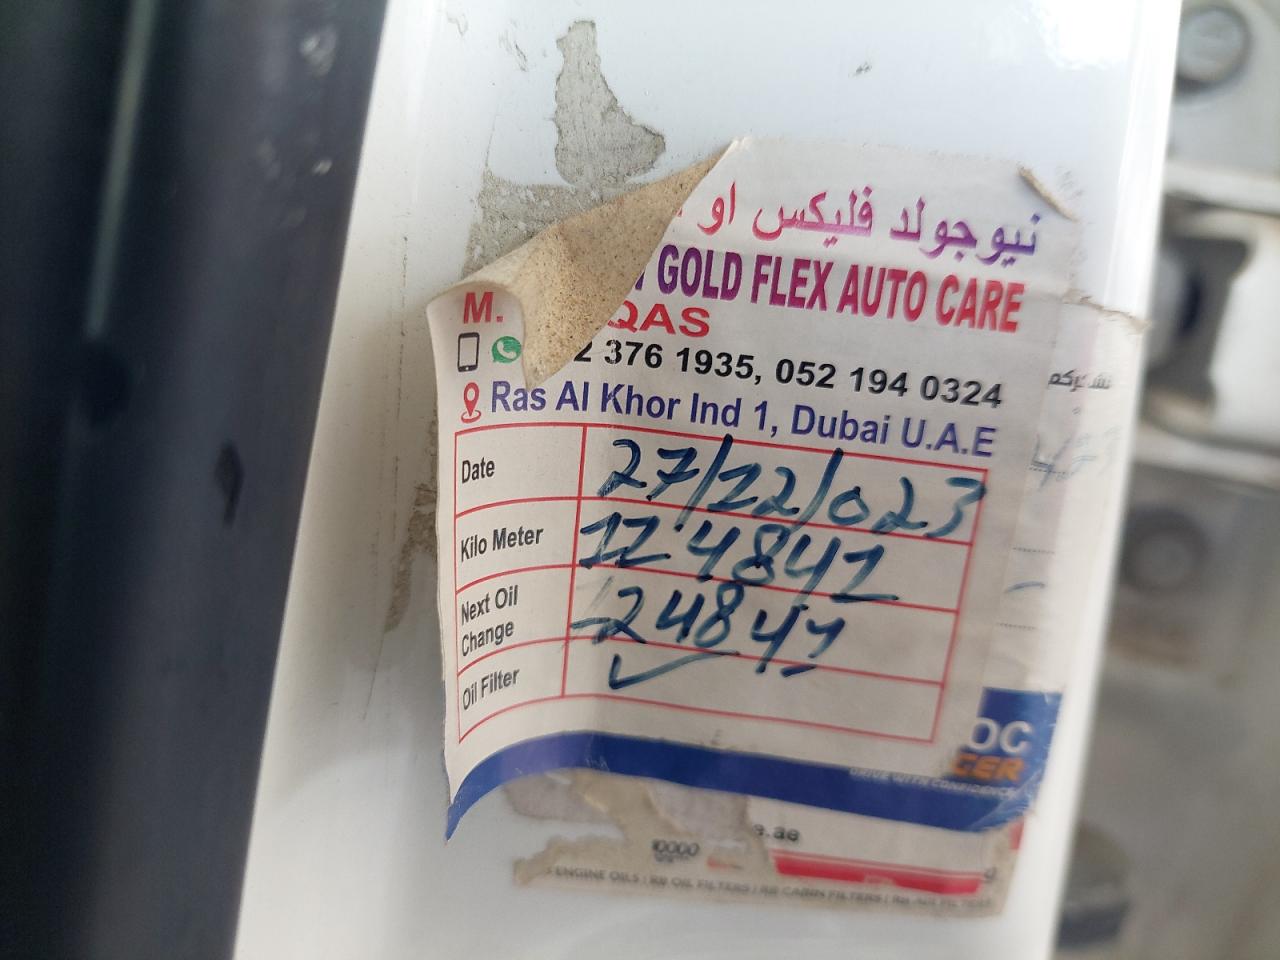 نيوجولد فليكس او
GOLD FLEX AUTO CARE
M. QAS
2 376 1935, 052 194 0324
Ras Al Khor Ind 1, Dubai U.A.E
Date 27/12/023
Kilo Meter 114841
Next Oil Change 124841
Oil Filter ✓
OC
GER
DRIVE WITH CONFIDENCE
e.ae
10000
ENGINE OILS | RB OIL FILTERS | RB CABIN FILTERS | RB AIR FILTERS